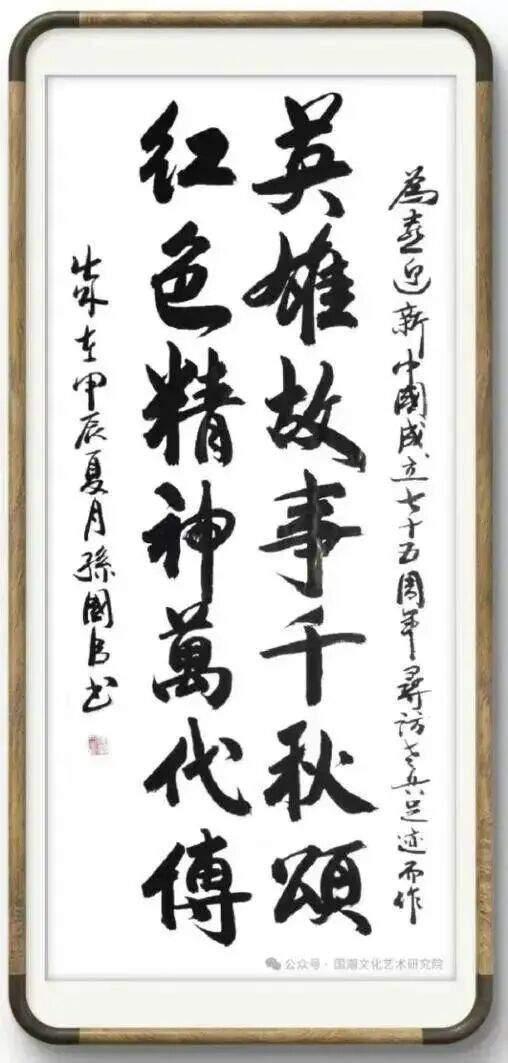 為喜迎新中國成立七十五周年尋訪老兵足迹而作
英雄故事千秋頌
紅色精神萬代傳
歲在甲辰夏月孫國书
公众号 · 国潮文化艺术研究院